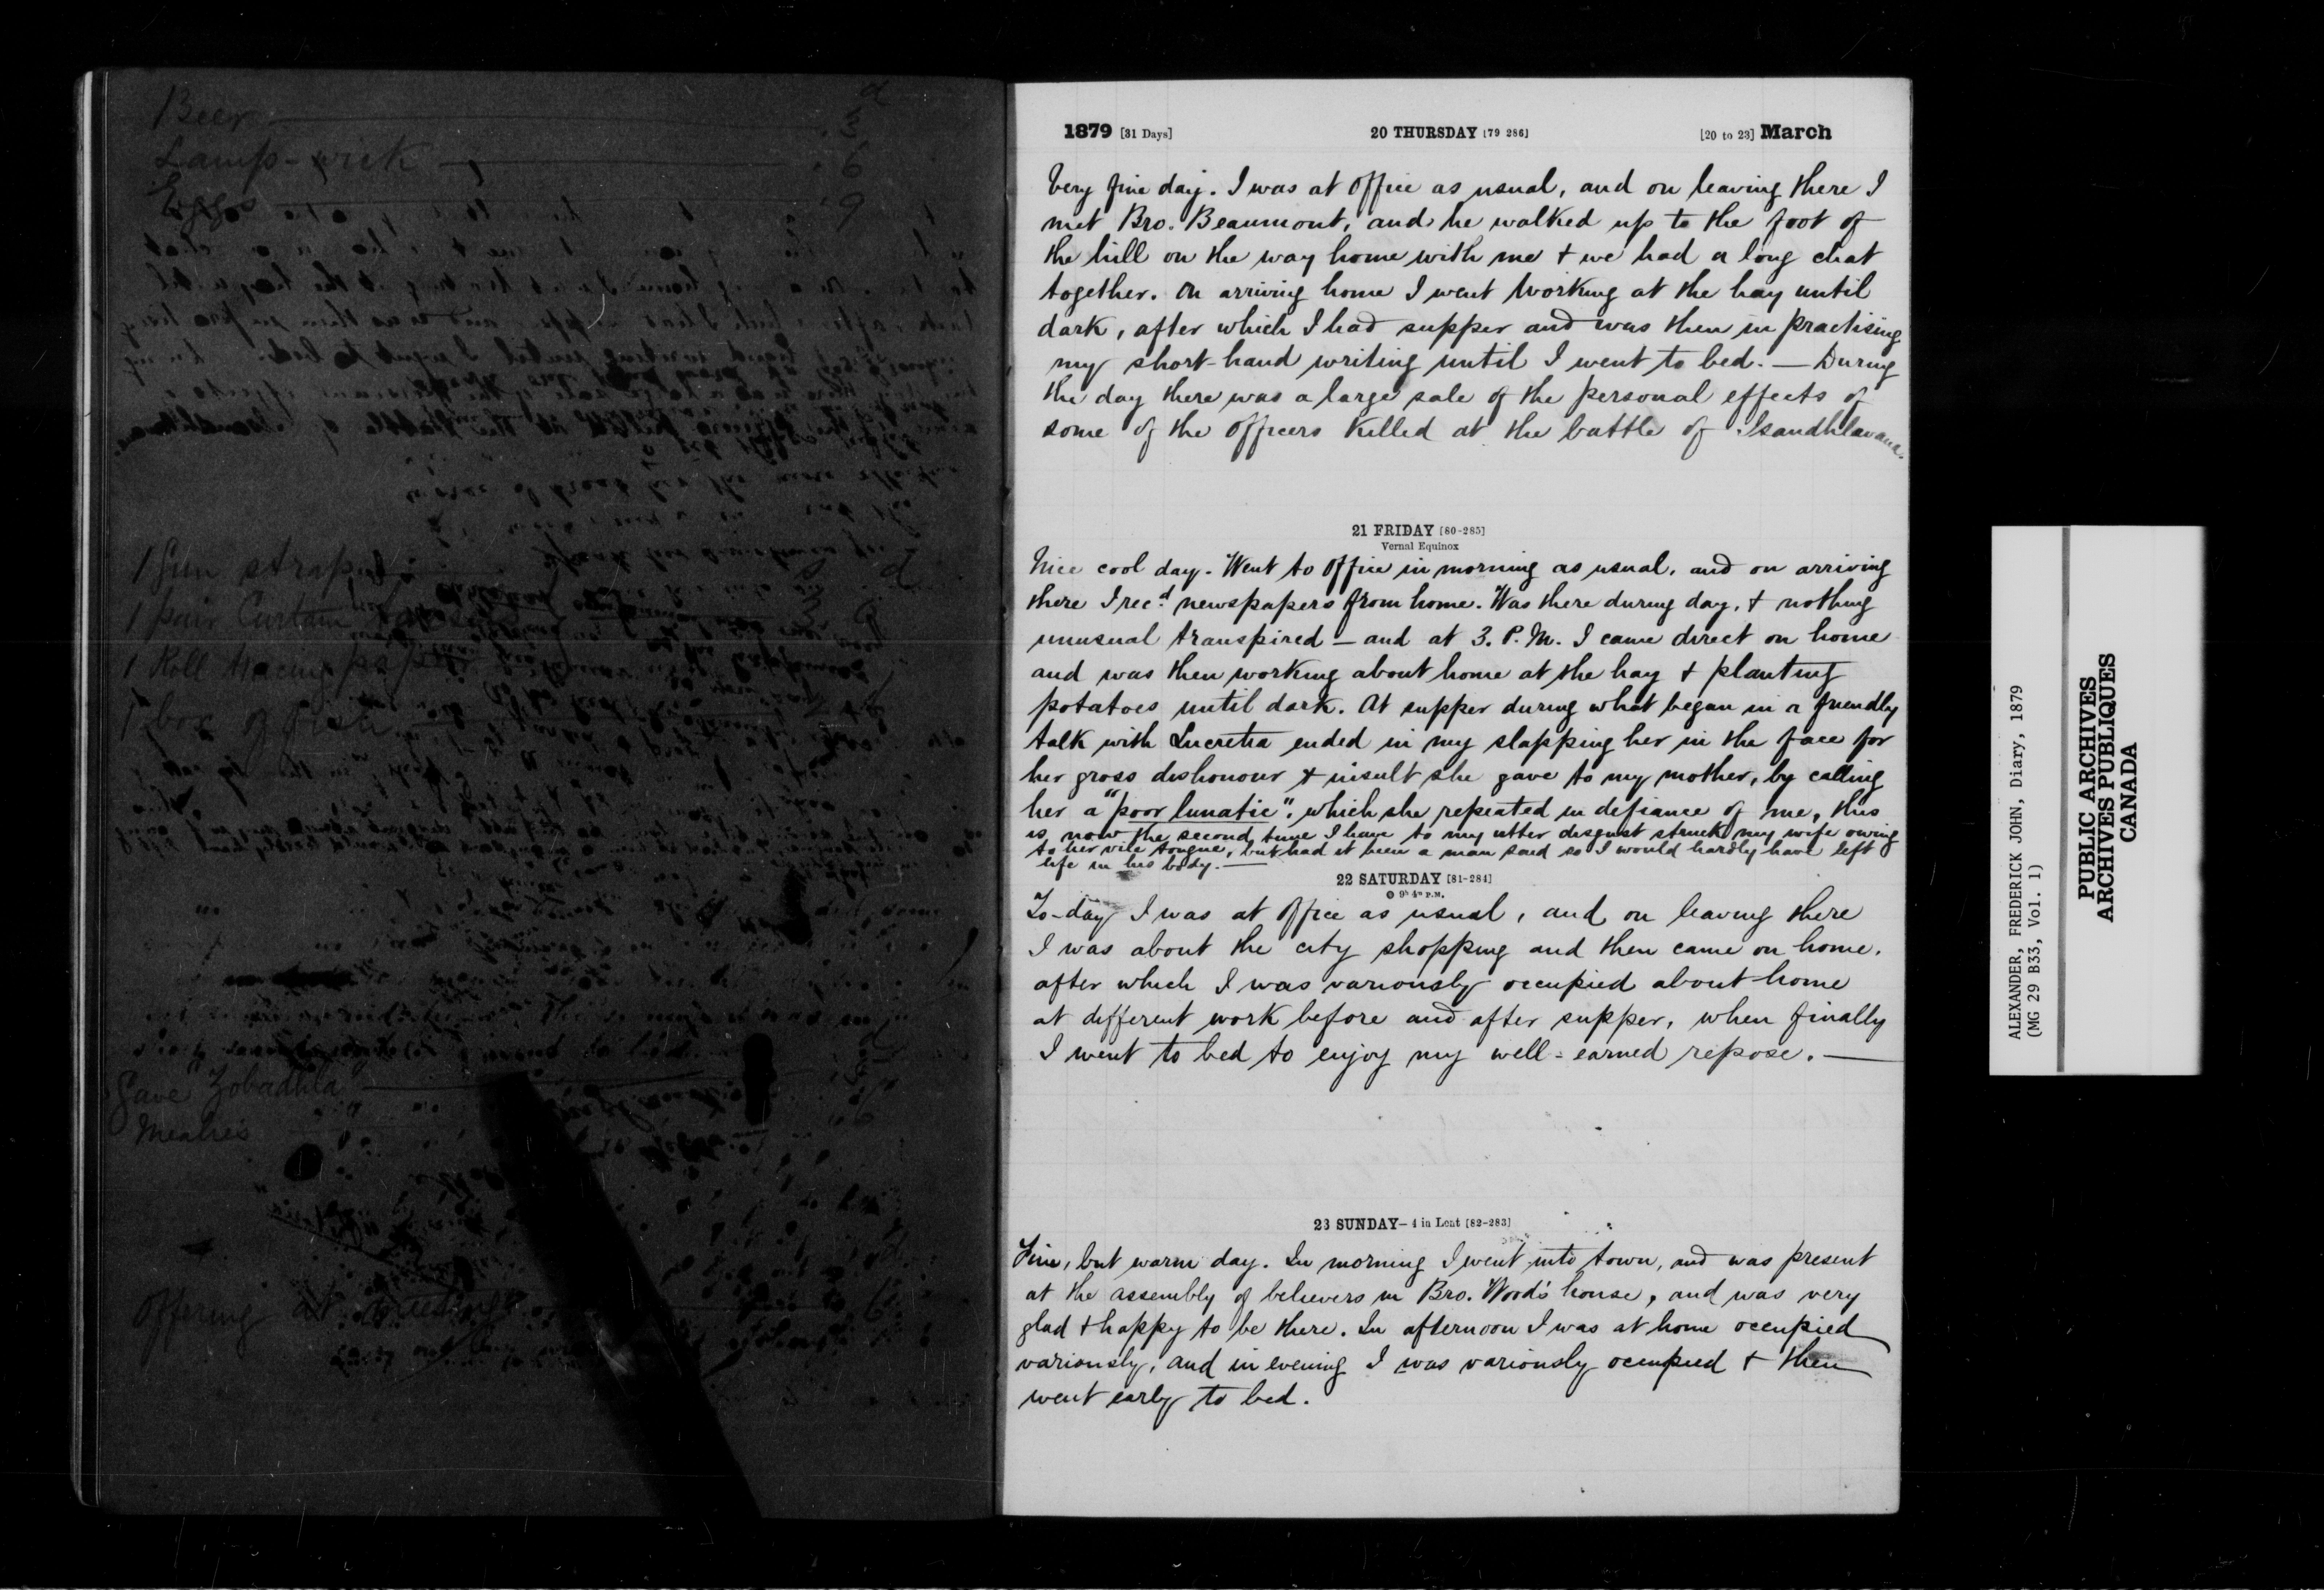 Beer d
3
Lamp-wick 6
Eggs 9
1 Gun strap
1 pair Curtain
1 Roll tracing paper
1 box of fish
Gave Zobadhla
Mealies 6
Offering at meeting 6
1879 [31 Days] 20 THURSDAY [79 286] [20 to 23] March
Very fine day. I was at office as usual, and on leaving there I
met Bro. Beaumont, and he walked up to the foot of
the hill on the way home with me + we had a long chat
together. On arriving home I went working at the hay until
dark, after which I had supper and was then in practising
my short-hand writing until I went to bed. — During
the day there was a large sale of the personal effects of
some of the officers killed at the battle of Isandhlavana.
21 FRIDAY [80-285]
Vernal Equinox
Nice cool day. Went to office in morning as usual, and on arriving
there I recd. newspapers from home. Was there during day, + nothing
unusual transpired — and at 3. P.M. I came direct on home
and was then working about home at the hay + planting
potatoes until dark. At supper during what began in a friendly
talk with Lucretia ended in my slapping her in the face for
her gross dishonour + insult she gave to my mother, by calling
her a "poor lunatic", which she repeated in defiance of me, this
is now the second time I have to my utter disgust struck my wife owing
to her vile tongue, but had it been a man said so I would hardly have left
life in his body. —
22 SATURDAY [81-284]
9h 4m P.M.
To-day I was at office as usual, and on leaving there
I was about the city shopping and then came on home.
after which I was variously occupied about home
at different work before and after supper, when finally
I went to bed to enjoy my well-earned repose. —
23 SUNDAY—4 in Lent [82-283]
Fine, but warm day. In morning I went into town, and was present
at the assembly of believers in Bro. Wood's house, and was very
glad + happy to be there. In afternoon I was at home occupied
variously, and in evening I was variously occupied + then
went early to bed.
ALEXANDER, FREDERICK JOHN, Diary, 1879
(MG 29 B33, Vol. 1)
PUBLIC ARCHIVES
ARCHIVES PUBLIQUES
CANADA